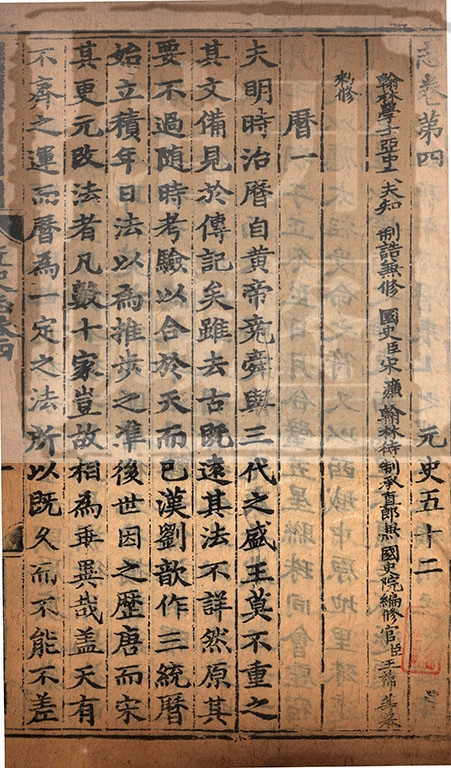 志卷第四 元史五十二
翰林學士亞中大夫知 制誥兼修 國史臣宋濂翰林待制承直郎兼 國史院編修官臣王禕奉
敕修
曆一
夫明時治曆自黃帝堯舜與三代之盛王莫不重之
其文備見於傳記矣雖去古既遠其法不詳然原其
要不過隨時考驗以合於天而已漢劉歆作三統曆
始立積年日法以為推步之準後世因之歷唐而宋
其更元改法者凡數十家豈故相為乖異哉盖天有
不齊之運而曆為一定之法所以既久而不能不差